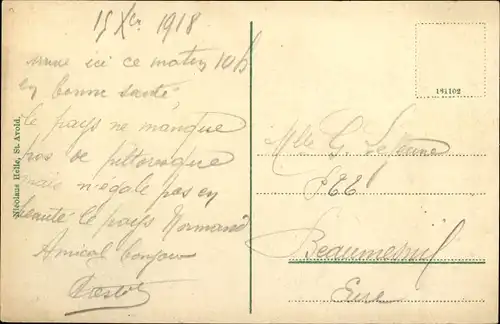 15 Xer 1918
ici ce matin 10h
en bonne santé
le pays ne manque
pas de pittoresque
mais n'égale pas en
beauté le pays Normand
Amical bonjour
Nicolaus Helle, St. Avold.
181102
Mlle G Lejeune
Beaumesnil
Eure